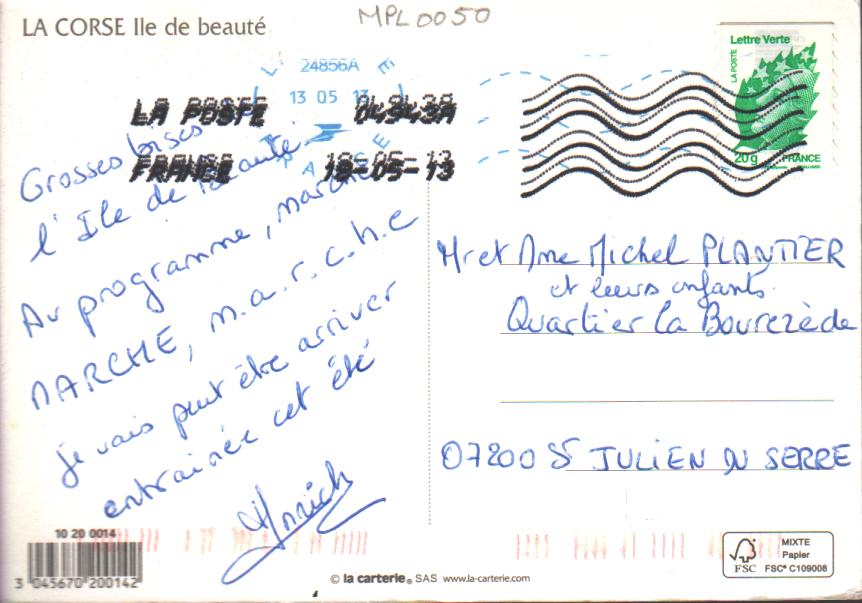 LA CORSE Ile de beauté
MPL0050
24856A
13 05 13
LA POSTE 04943A
FRANCE 13-05-13
Lettre Verte
LA POSTE
20g FRANCE
Grosses bises
l'Ile de Beauté
Au programme, marche
MARCHE, m.a.r.c.h.e
je vais peut être arriver
entrainée cet été
Mr et Mme Michel PLANTIER
et leurs enfants
Quartier la Bourezède
07200 St JULIEN DU SERRE
10 20 0014
3 045670 200142
© la carterie® SAS www.la-carterie.com
FSC
MIXTE
Papier
FSC® C109008